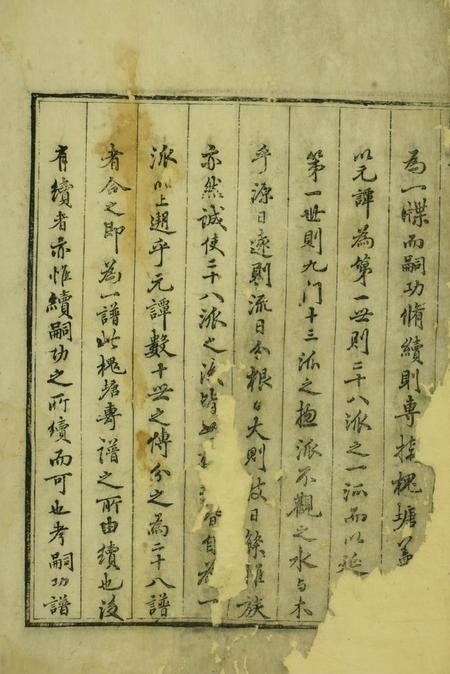 為一牒而嗣功脩續則專據槐塘蓋
以元譚為第一世則二十八派之一派而以延
第一世則九門十三派之揔派不觀之水与木
乎源日遠則流日分根日大則枝日繁惟族
亦然誠使二十八派之派皆自為一
派以上遡乎元譚數十世之傳分之為二十八譜
者合之即為一譜此槐塘專譜之所由續也後
有續者亦惟續嗣功之所續而可也考嗣功譜